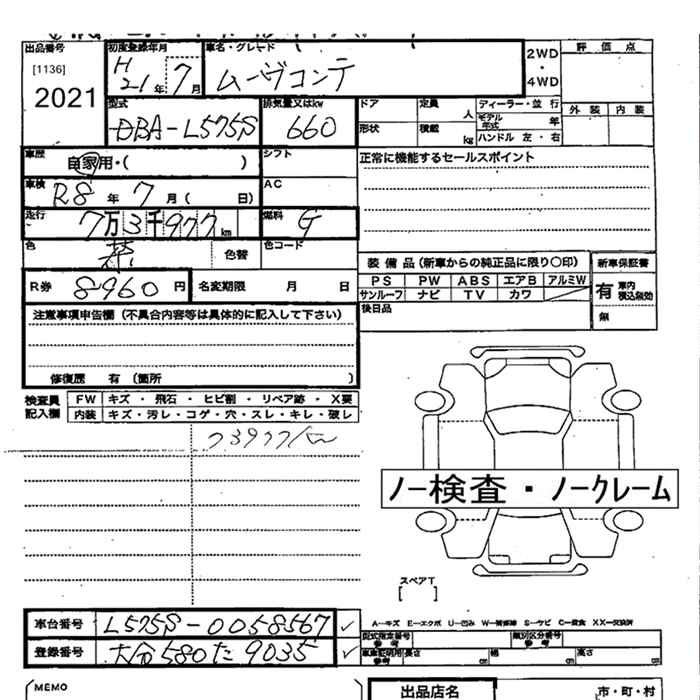 出品番号
[1136]
2021
初度登録年月
H21年7月
車名・グレード
ムーヴコンテ
2WD
・
4WD
評価点
外装 内装
型式
DBA-L575S
排気量又はkw
660
ドア
定員
人
ディーラー・並行
モデル年式
年
形状
積載
kg
ハンドル 左・右
車歴
自家用・( )
シフト
正常に機能するセールスポイント
車検
R8年7月( 日)
AC
走行
7万3千977km
燃料
G
色
色替
色コード
R券
8960円
名変期限 月 日
装備品(新車からの純正品に限り〇印)
PS PW ABS エアB アルミW
サンルーフ ナビ TV カワ
後日品
新車保証書
有 車内積込無効
無
注意事項申告欄(不具合内容等は具体的に記入して下さい)
修復歴 有(箇所 )
検査員記入欄
FW キズ・飛石・ヒビ割・リペア跡・X要
内装 キズ・汚レ・コゲ・穴・スレ・キレ・破レ
73977km
ノー検査・ノークレーム
スペアT
[ ]
車台番号
L575S-0058567
登録番号
大分580た9035
A-キズ E-エクボ U-凹み W-補修跡 S-サビ C-腐食 XX-交換済
型式指定番号
参考
類別区分番号
参考
車庫証明用
参考
長さ cm 幅 cm 高さ cm
MEMO
出品店名
市・町・村